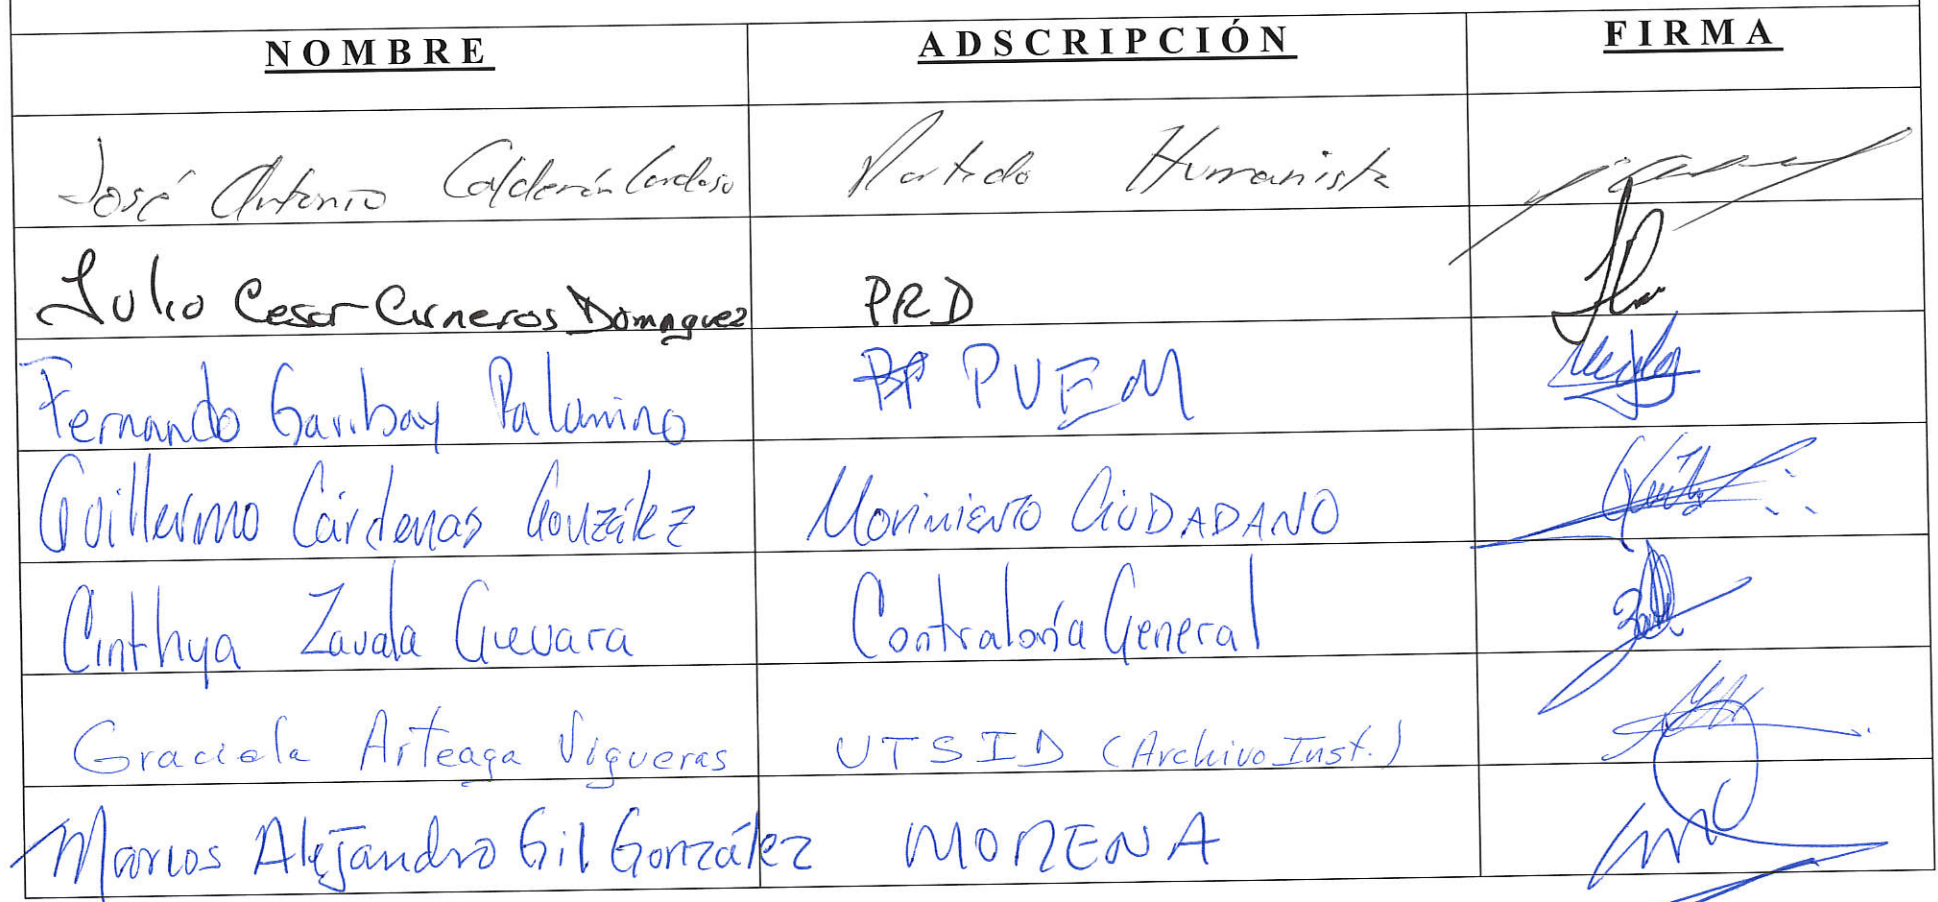 NOMBRE ADSCRIPCIÓN FIRMA
José Antonio Calderón Cardoso Partido Humanista
Julio Cesar Cisneros Domnguez PRD
Fernando Garibay Palomino PVEM
Guillermo Cárdenas González Movimiento CIUDADANO
Cinthya Zavala Guevara Contraloría General
Graciela Arteaga Vigueras UTSID (Archivo Inst.)
Marcos Alejandro Gil González MORENA